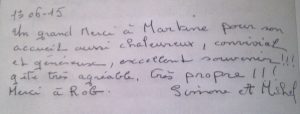 13-06-15
Un grand Merci à Martine pour son
accueil aussi chaleureux, convivial
et généreux, excellent souvenir!!!
gîte très agréable, très propre!!!
Merci à Robr. Simone et Michel